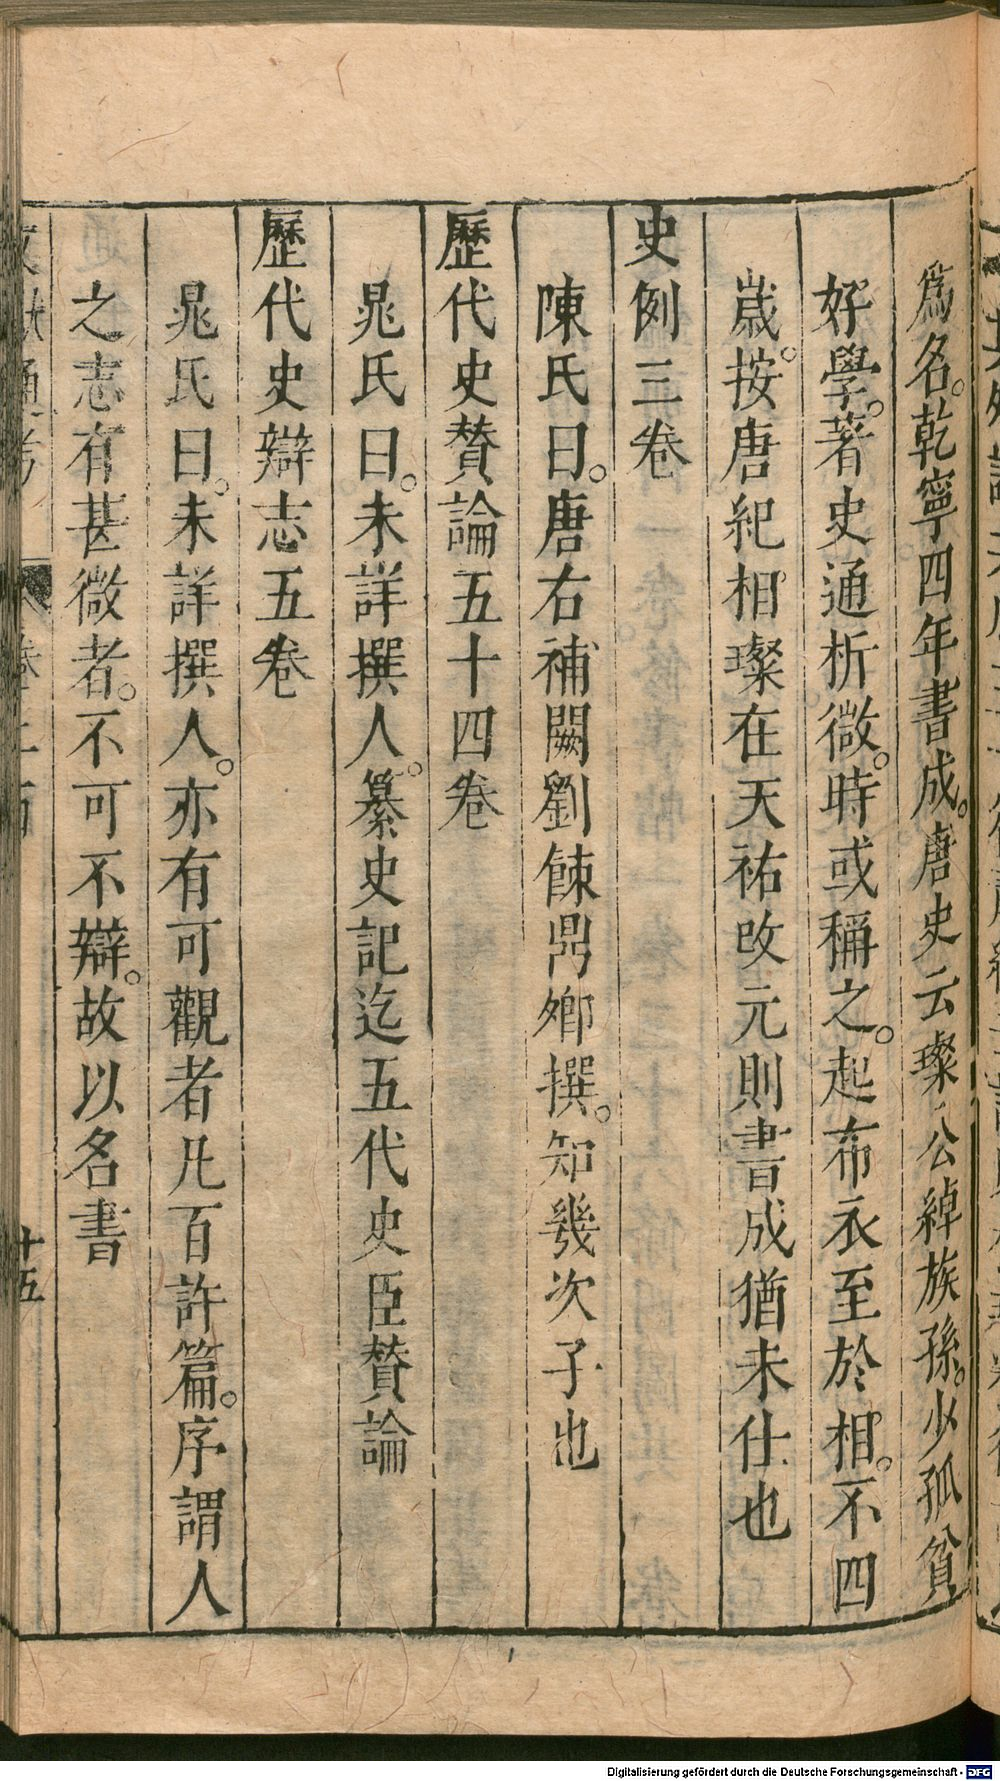 爲名。乾寧四年書成。唐史云璨公綽族孫。少孤貧
好學。著史通析微。時或稱之。起布衣至於相。不四
歲。按唐紀相璨在天祐改元則書成猶未仕也
史例三卷
陳氏曰。唐右補闕劉餗鼎卿撰。知幾次子也
歷代史贊論五十四卷
晁氏曰。未詳撰人。纂史記迄五代史臣贊論
歷代史辯志五卷
晁氏曰。未詳撰人。亦有可觀者凡百許篇。序謂人
之志有甚微者。不可不辯。故以名書
十五
Digitalisierung gefördert durch die Deutsche Forschungsgemeinschaft - DFG